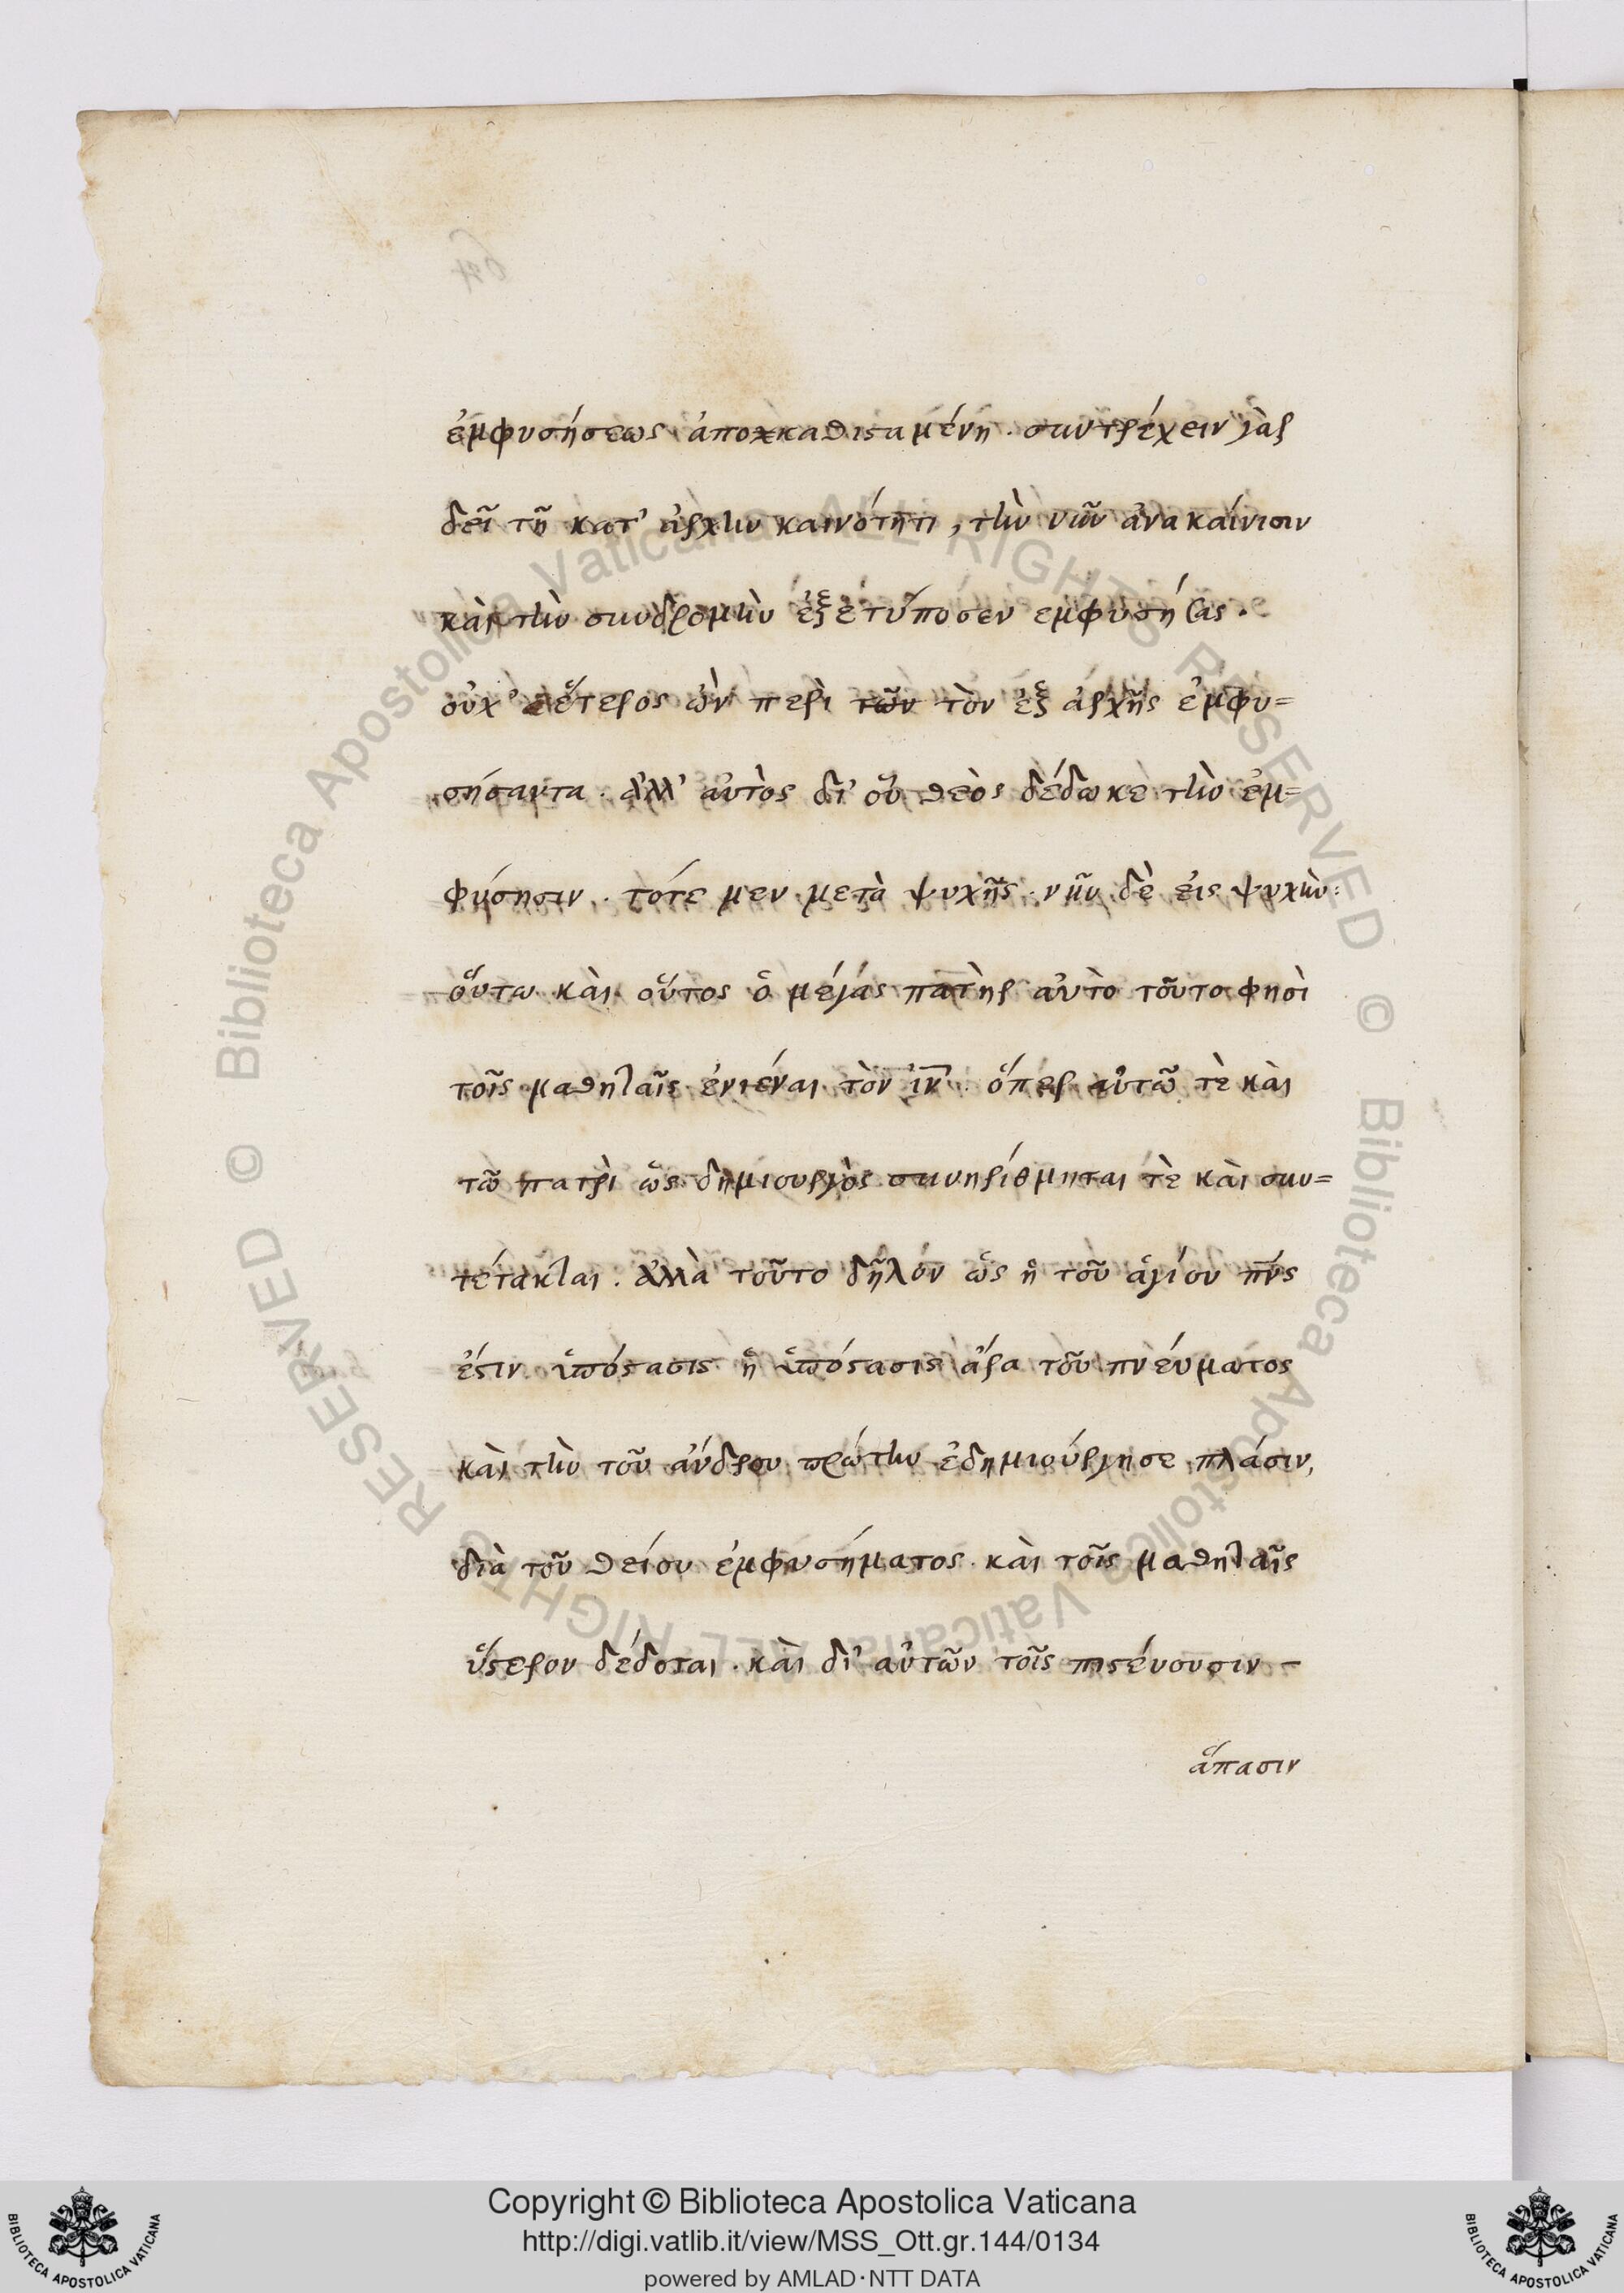 ἐμφυσήσεως ἀποκαθισταμένη · συντρέχειν γὰρ
δεῖ τῇ κατ' ἀρχὴν καινότητι, τὴν νῦν ἀνακαίνισιν
κὰι τὴν συνδρομὴν ἐξετύποσεν εμφυσήσας ·
οὐχ' ἕτερος ὢν περὶ τὸν ἐξ ἀρχῆς ἐμφυ=
σήσαντα · ἀλλ' ἀυτὸς δι' οὗ θεὸς δέδωκε τὴν ἐμ=
φύσησιν · τότε μεν μετὰ ψυχῆς · νῦν δὲ ἐις ψυχὴν:
ὅυτω κὰι οὗτος ὁ μέγας πατὴρ ἀυτὸ τοῦτο φησὶ
τοῖς μαθηταῖς ἐνιέναι τὸν ἰν̅ · ὅπερ αὐτῶ τὲ κὰι
τῶ πατρὶ ὡς δημιουργὸς συνηρίθμηται τὲ κὰι συν=
τέτακται · ἀλλὰ τοῦτο δῆλόν ὡς ἡ τοῦ ἁγίου πν̅ς
ἐστιν ὑπόστασις ἡ ὑπόστασις ἄρα τοῦ πνέυματος
κὰι τὴν τοῦ ἀνδρου πρώτην ἐδημιούργησε πλάσιν,
διὰ τοῦ θείου ἐμφυσήματος · κὰι τοῖς μαθηταῖς
ὕστερον δέδοται · κὰι δι' αὐτῶν τοῖς πιστέυουσιν -
ἅπασιν
Copyright © Biblioteca Apostolica Vaticana
http://digi.vatlib.it/view/MSS_Ott.gr.144/0134
powered by AMLAD·NTT DATA
© Biblioteca Apostolica Vaticana ALL RIGHTS RESERVED © Biblioteca Apostolica Vaticana ALL RIGHTS RESERVED
BIBLIOTECA APOSTOLICA VATICANA
BIBLIOTECA APOSTOLICA VATICANA